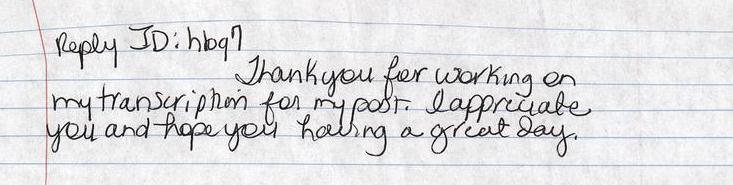 Reply ID: hbq7
Thank you for working on
my transcription for my post. I appreciate
you and hope you having a great day.